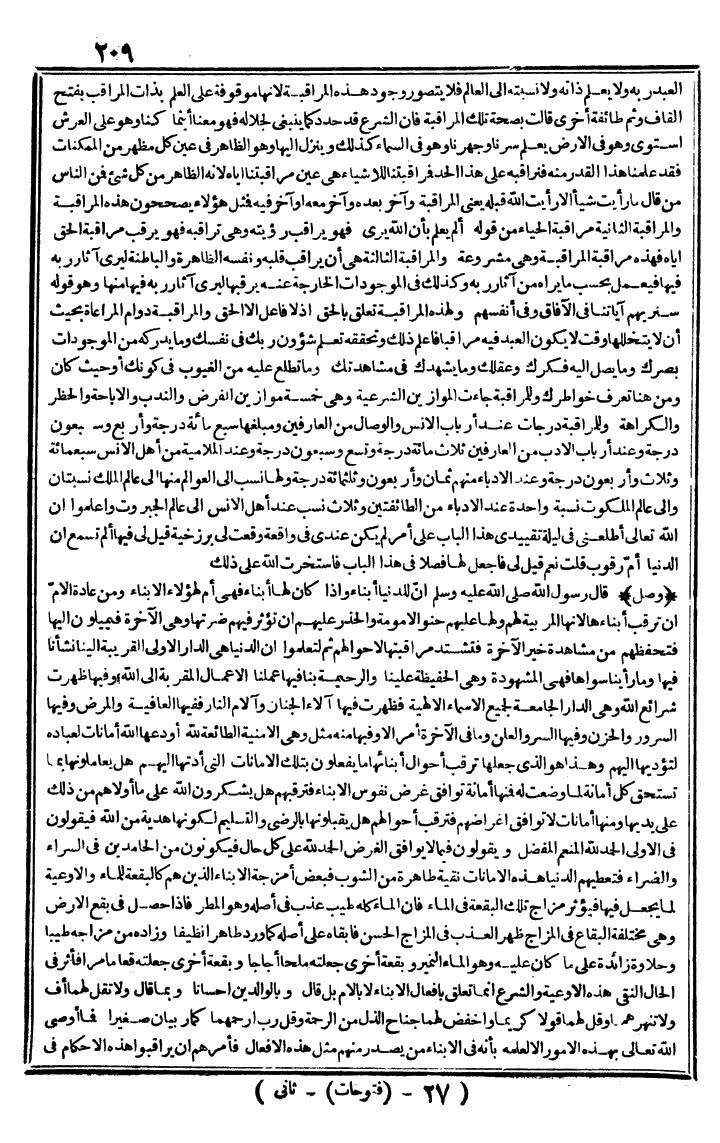 ٢٠٩
العبدر به ولا يعلم ذاته ولا نسبته الى العالم فلا يتصور وجود هذه المراقبة لانها موقوفة على العلم بذات المراقب بفتح
القاف وثم طائفة أخرى قالت بصحة تلك المراقبة فان الشرع قد حدد كما ينبغى لجلاله فهو معنا أينما كنا وهو على العرش
استوى وهو فى الارض يعلم سرنا وجهرنا وهو فى السماء كذلك وينزل اليها وهو الظاهر فى عين كل مظهر من الممكنات
فقد علمنا هذا القدر منه فنراقبه على هذا الحد فراقبتنا للاشياء هى عين مراقبتنا اياه لانه الظاهر من كل شئ فن الناس
من قال ما رأيت شيأ الا رأيت الله قبله يعنى المراقبة وآخر بعده وآخر معه او آخر فيه فمثل هؤلاء يصححون هذه المراقبة
والمراقبة الثانية مراقبة الحياء من قوله ألم يعلم بأن الله يرى فهو يراقب رؤيته وهى تراقبه فهو يرقب مراقبة الحق
اياه فهذه مراقبة المراقبة وهى مشروعة والمراقبة الثالثة هى أن يراقب قلبه ونفسه الظاهرة والباطنة ليرى آثار ربه
فيها فيعمل بحسب ما يراه من آثار ربه وكذلك فى الموجودات الخارجة عنه يرقبها ليرى آثار ربه فيها منها وهو قوله
سنريهم آياتنا فى الآفاق وفى أنفسهم ولهذه المراقبة تعلق بالحق اذ لا فاعل الا الحق والمراقبة دوام المراعاة بحيث
أن لا يتخللها وقت لا يكون العبد فيه مراقبا فاعلم ذلك وتحققه تعلم شؤون ربك فى نفسك وما يدركه من الموجودات
بصرك وما يصل اليه فكرك وعقلك وما يشهدك فى مشاهدتك وما تطلع عليه من الغيوب فى كونك أو حيث كان
ومن هنا تعرف خواطرك وللمراقبة جاءت الموازين الشرعية وهى خمسة موازين الفرض والندب والاباحة والحظر
والكراهة وللمراقبة درجات عند أرباب الانس والوصال من العارفين ومبلغها سبع مائة درجة وأربع وسبعون
درجة وعند أرباب الادب من العارفين ثلاث مائة درجة وتسع وسبعون درجة وعند الملامية من أهل الانس سبعمائة
وثلاث وأربعون درجة وعند الادباء منهم ثمان وأربعون وثلثمائة درجة ولها نسب الى العوالم منها الى عالم الملك نسبتان
والى عالم الملكوت نسبة واحدة عند الادباء من الطائفتين وثلاث نسب عند أهل الانس الى عالم الجبروت واعلموا ان
الله تعالى أطلعنى فى ليلة تقييدى هذا الباب على أمر لم يكن عندى فى واقعة وقعت لى برزخية قيل لى فيها ألم تسمع ان
الدنيا أمّ رقوب قلت نعم قيل لى فاجعل لها فصلا فى هذا الباب فاستخرت الله على ذلك
﴿وصل﴾ قال رسول الله صلى الله عليه وسلم انّ للدنيا أبناء واذا كان لها أبناء فهى أم لهؤلاء الابناء ومن عادة الامّ
ان ترقب أبناءها لانها المربية لهم ولها عليهم حنو الامومة والحذر عليهم ان تؤثر فيهم ضرتها وهى الآخرة فيميلون اليها
فتحفظهم من مشاهدة خير الآخرة فتشتد مراقبتها لاحوالهم ثم لتعلموا ان الدنيا هى الدار الاولى القريبة الينا نشأنا
فيها وما رأينا سواها فهى المشهودة وهى الحفيظة علينا والرحيمة بنا فيها عملنا الاعمال المقربة الى الله وفيها ظهرت
شرائع الله وهى الدار الجامعة لجميع الاسماء الالهية فظهرت فيها آلاء الجنان وآلام النار ففيها العافية والمرض وفيها
السرور والحزن وفيها السر والعلن وما فى الآخرة أمر الا وفيها منه مثل وهى الامنية الطائعة لله أودعها الله أمانات لعباده
لتؤديها اليهم وهذا هو الذى جعلها ترقب أحوال أبنائها ما يفعلون بتلك الامانات التى أدتها اليهم هل يعاملونها بما
تستحق كل أمانة لما وضعت له فنها أمانة توافق غرض نفوس الابناء فترقبهم هل يشكرون الله على ما أولاهم من ذلك
على يديها ومنها أمانات لا توافق اغراضهم فترقب أحوالهم هل يقبلونها بالرضى والتسليم لكونها هدية من الله فيقولون
فى الاولى الحمد لله المنعم المفضل ويقولون فيما لا يوافق الغرض الحمد لله على كل حال فيكونون من الحامدين فى السراء
والضراء فتعطيهم الدنيا هذه الامانات نقية طاهرة من الشوب فبعض أمزجة الابناء الذين هم كالبقعة للماء والاوعية
لما يجعل فيها فيؤثر مزاج تلك البقعة فى الماء فان الماء كله طيب عذب فى أصله وهو المطر فاذا حصل فى بقع الارض
وهى مختلفة البقاع فى المزاج ظهر العذب فى المزاج الحسن فابقاه على أصله كما ورد طاهرا نظيفا وزاده من مزاجه طيبا
وحلاوة زائدة على ما كان عليه وهو الماء النمير وبقعة أخرى جعلته ملحا أجاجا وبقعة أخرى جعلته قعاما مرا فأثر فى
الحال النقى هذه الاوعية والشرع انما تعلق بافعال الابناء لا بالام بل قال وبالوالدين احسانا وبما قال ولا تقل لهما أف
ولا تنهرهما وقل لهما قولا كريما واخفض لهما جناح الذل من الرحمة وقل رب ارحمهما كما ربيان صغيرا فما أوصى
الله تعالى بهذه الامور الا لعلمه بأنه فى الابناء من يصدر منهم مثل هذه الافعال فأمرهم ان يراقبوا هذه الاحكام فى
( ٢٧ - (فتوحات) - ثانى )